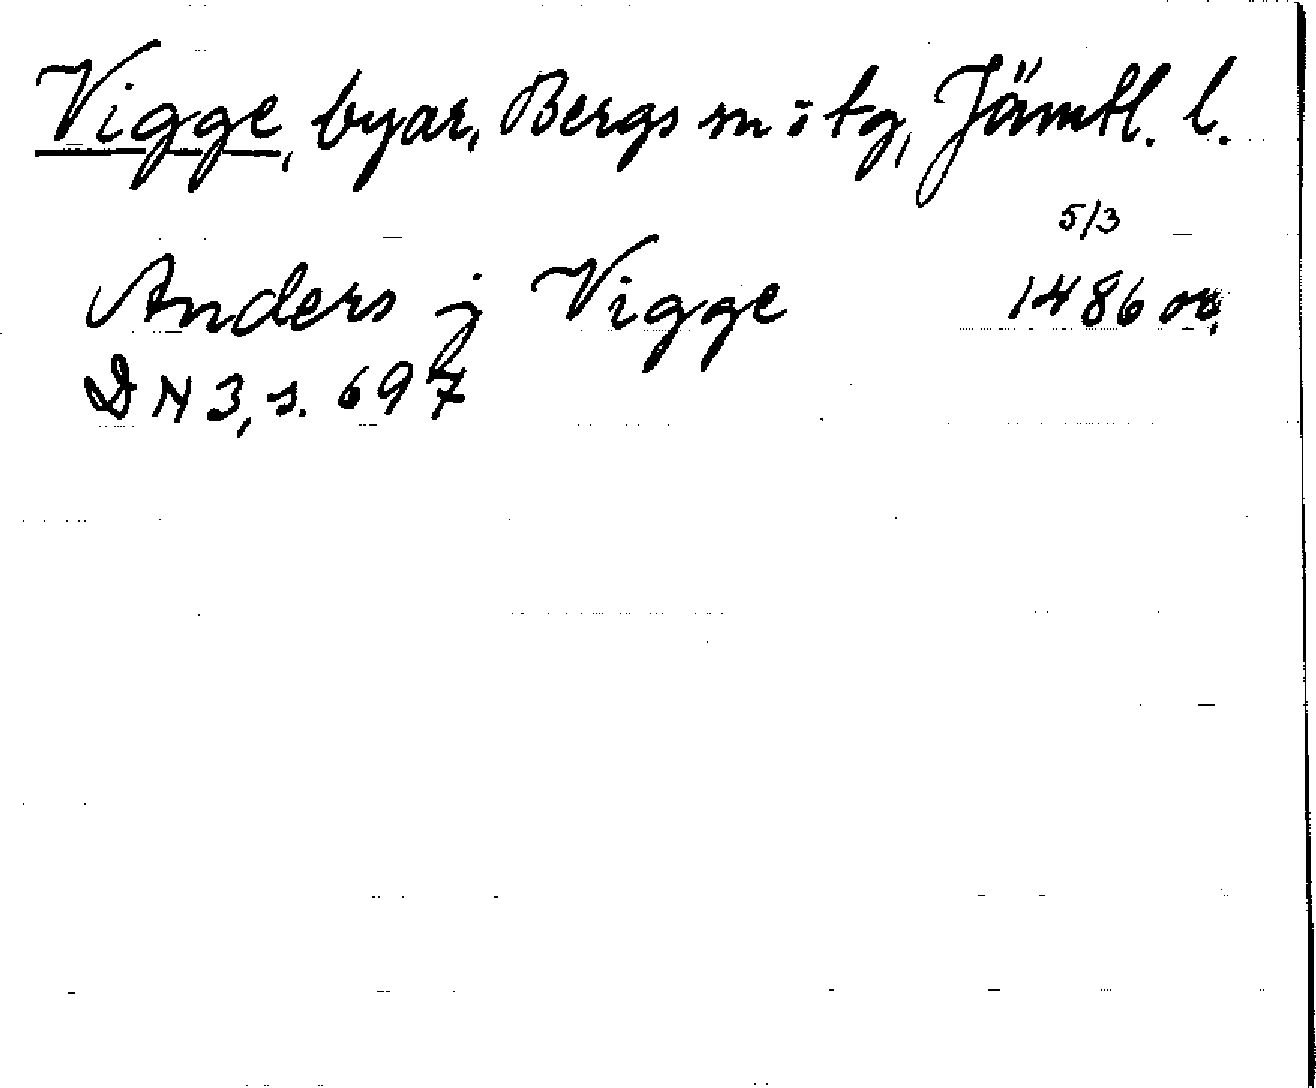 Vigge, byar, Bergs sn o tg, Jämtl. l.
5/3
Anders j Vigge 1486 or.
DN 3, s. 697